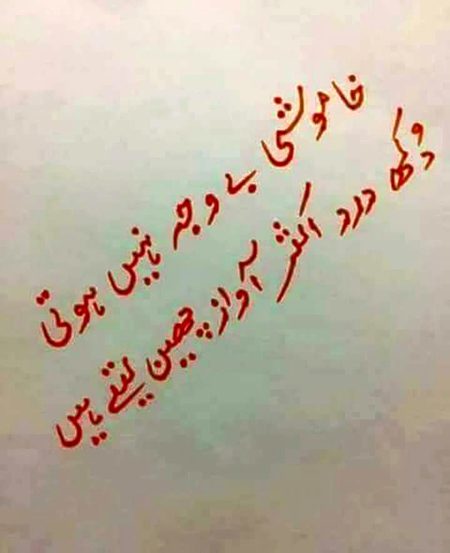 خاموشی بے وجہ نہیں ہوتی
دُکھ درد اکثر آواز چھین لیتے ہیں